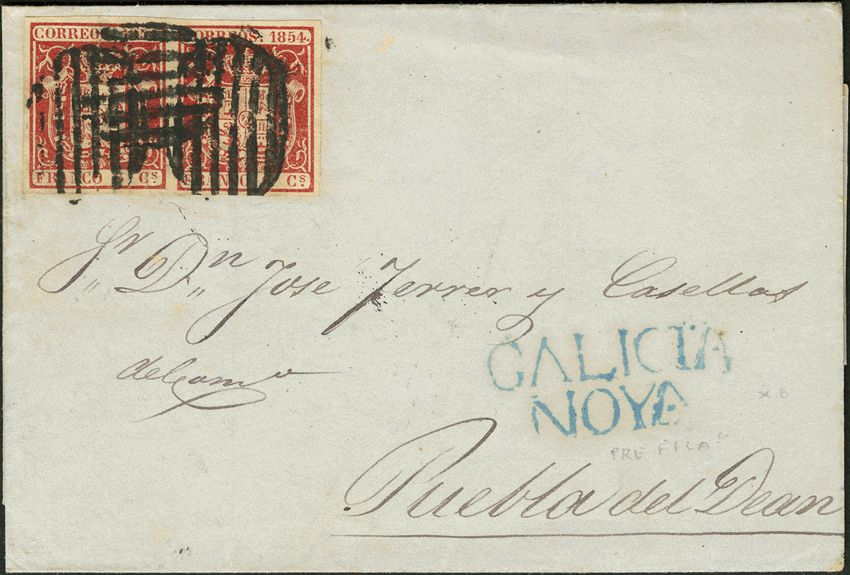 CORREOS 1854. CORREOS. 1854.
FRANCO Cs FRANCO Cs
Sr. Dn Jose Ferrer y Casellas
del Como
GALICIA
NOYA
PRE FILA
Puebla del Dean